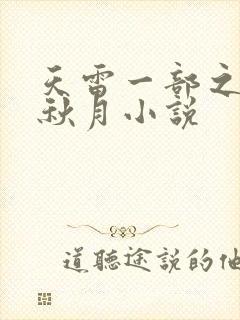 天雷一部之
秋月小说
道聽途說的他